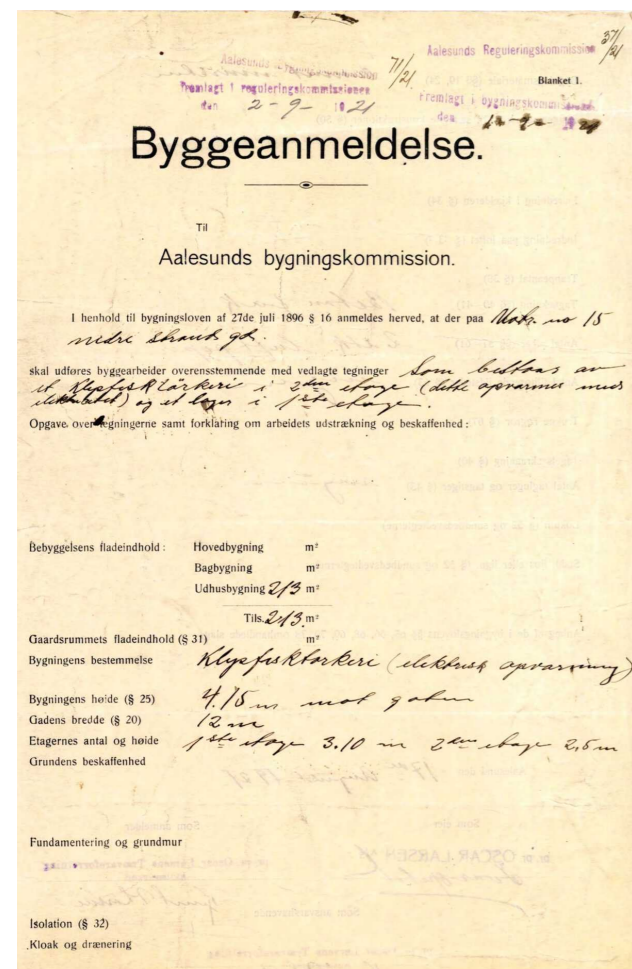 37/21
Aalesunds Reguleringskommission
71/21
Fremlagt i reguleringskommissionen
den 2-9-1921
Blanket 1.
Fremlagt i bygningskommissionen
den
Byggeanmeldelse.
Til
Aalesunds bygningskommission.
I henhold til bygningsloven af 27de juli 1896 § 16 anmeldes herved, at der paa Matr. no 15
nedre strand gd.
skal udføres byggearbeider overensstemmende med vedlagte tegninger Som bestaas av
et Klipfisktørkeri i 2den etage (dette opvarmes med
elektricitet) og et lager i 1ste etage.
Opgave over tegningerne samt forklaring om arbeidets udstrækning og beskaffenhed:
Bebyggelsens fladeindhold: Hovedbygning m²
Bagbygning m²
Udhusbygning 213 m²
Tils. 213 m²
Gaardsrummets fladeindhold (§ 31) m²
Bygningens bestemmelse Klipfisktørkeri (elektrisk opvarmning)
Bygningens høide (§ 25) 4.75 m mot gaten
Gadens bredde (§ 20) 12 m
Etagernes antal og høide 1ste etage 3.10 m 2den etage 2,5 m
Grundens beskaffenhed
Fundamentering og grundmur
Isolation (§ 32)
Kloak og drænering